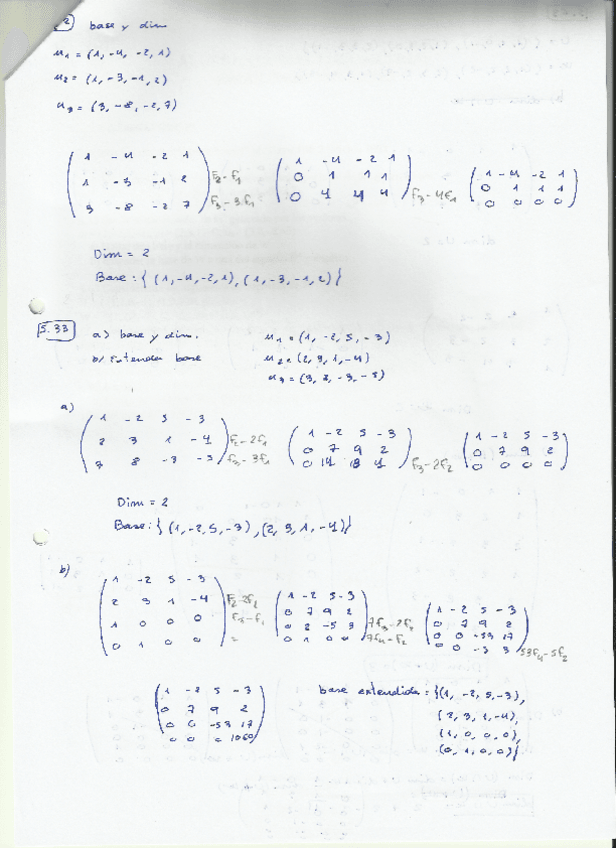 base y dim
u1 = (1, -4, -2, 1)
u2 = (1, -3, -1, 2)
u3 = (3, -8, -2, 7)
1 -4 -2 1
1 -3 -1 2 F2-F1
3 -8 -2 7 F3-3F1
1 -4 -2 1
0 1 1 1
0 4 4 4 F3-4F1
1 -4 -2 1
0 1 1 1
0 0 0 0
Dim = 2
Base: { (1, -4, -2, 1), (1, -3, -1, 2) }
5.33 a) base y dim. u1 = (1, -2, 5, -3)
b) Extender base u2 = (2, 3, 1, -4)
u3 = (3, 8, -3, -5)
a)
1 -2 5 -3
2 3 1 -4 F2-2F1
3 8 -3 -5 F3-3F1
1 -2 5 -3
0 7 9 2
0 14 18 4 F3-2F2
1 -2 5 -3
0 7 9 2
0 0 0 0
Dim = 2
Base: { (1, -2, 5, -3), (2, 3, 1, -4) }
b)
1 -2 5 -3
2 3 1 -4
1 0 0 0
0 1 0 0
1 -2 5 -3
0 7 9 2
0 2 -5 3
0 1 0 0
1 -2 5 -3
0 7 9 2
0 0 -53 17
1 -2 5 -3
0 7 9 2
0 0 -53 17
0 0 0 1060
base extendida = {(1, -2, 5, -3),
(2, 3, 1, -4),
(1, 0, 0, 0),
(0, 1, 0, 0)}